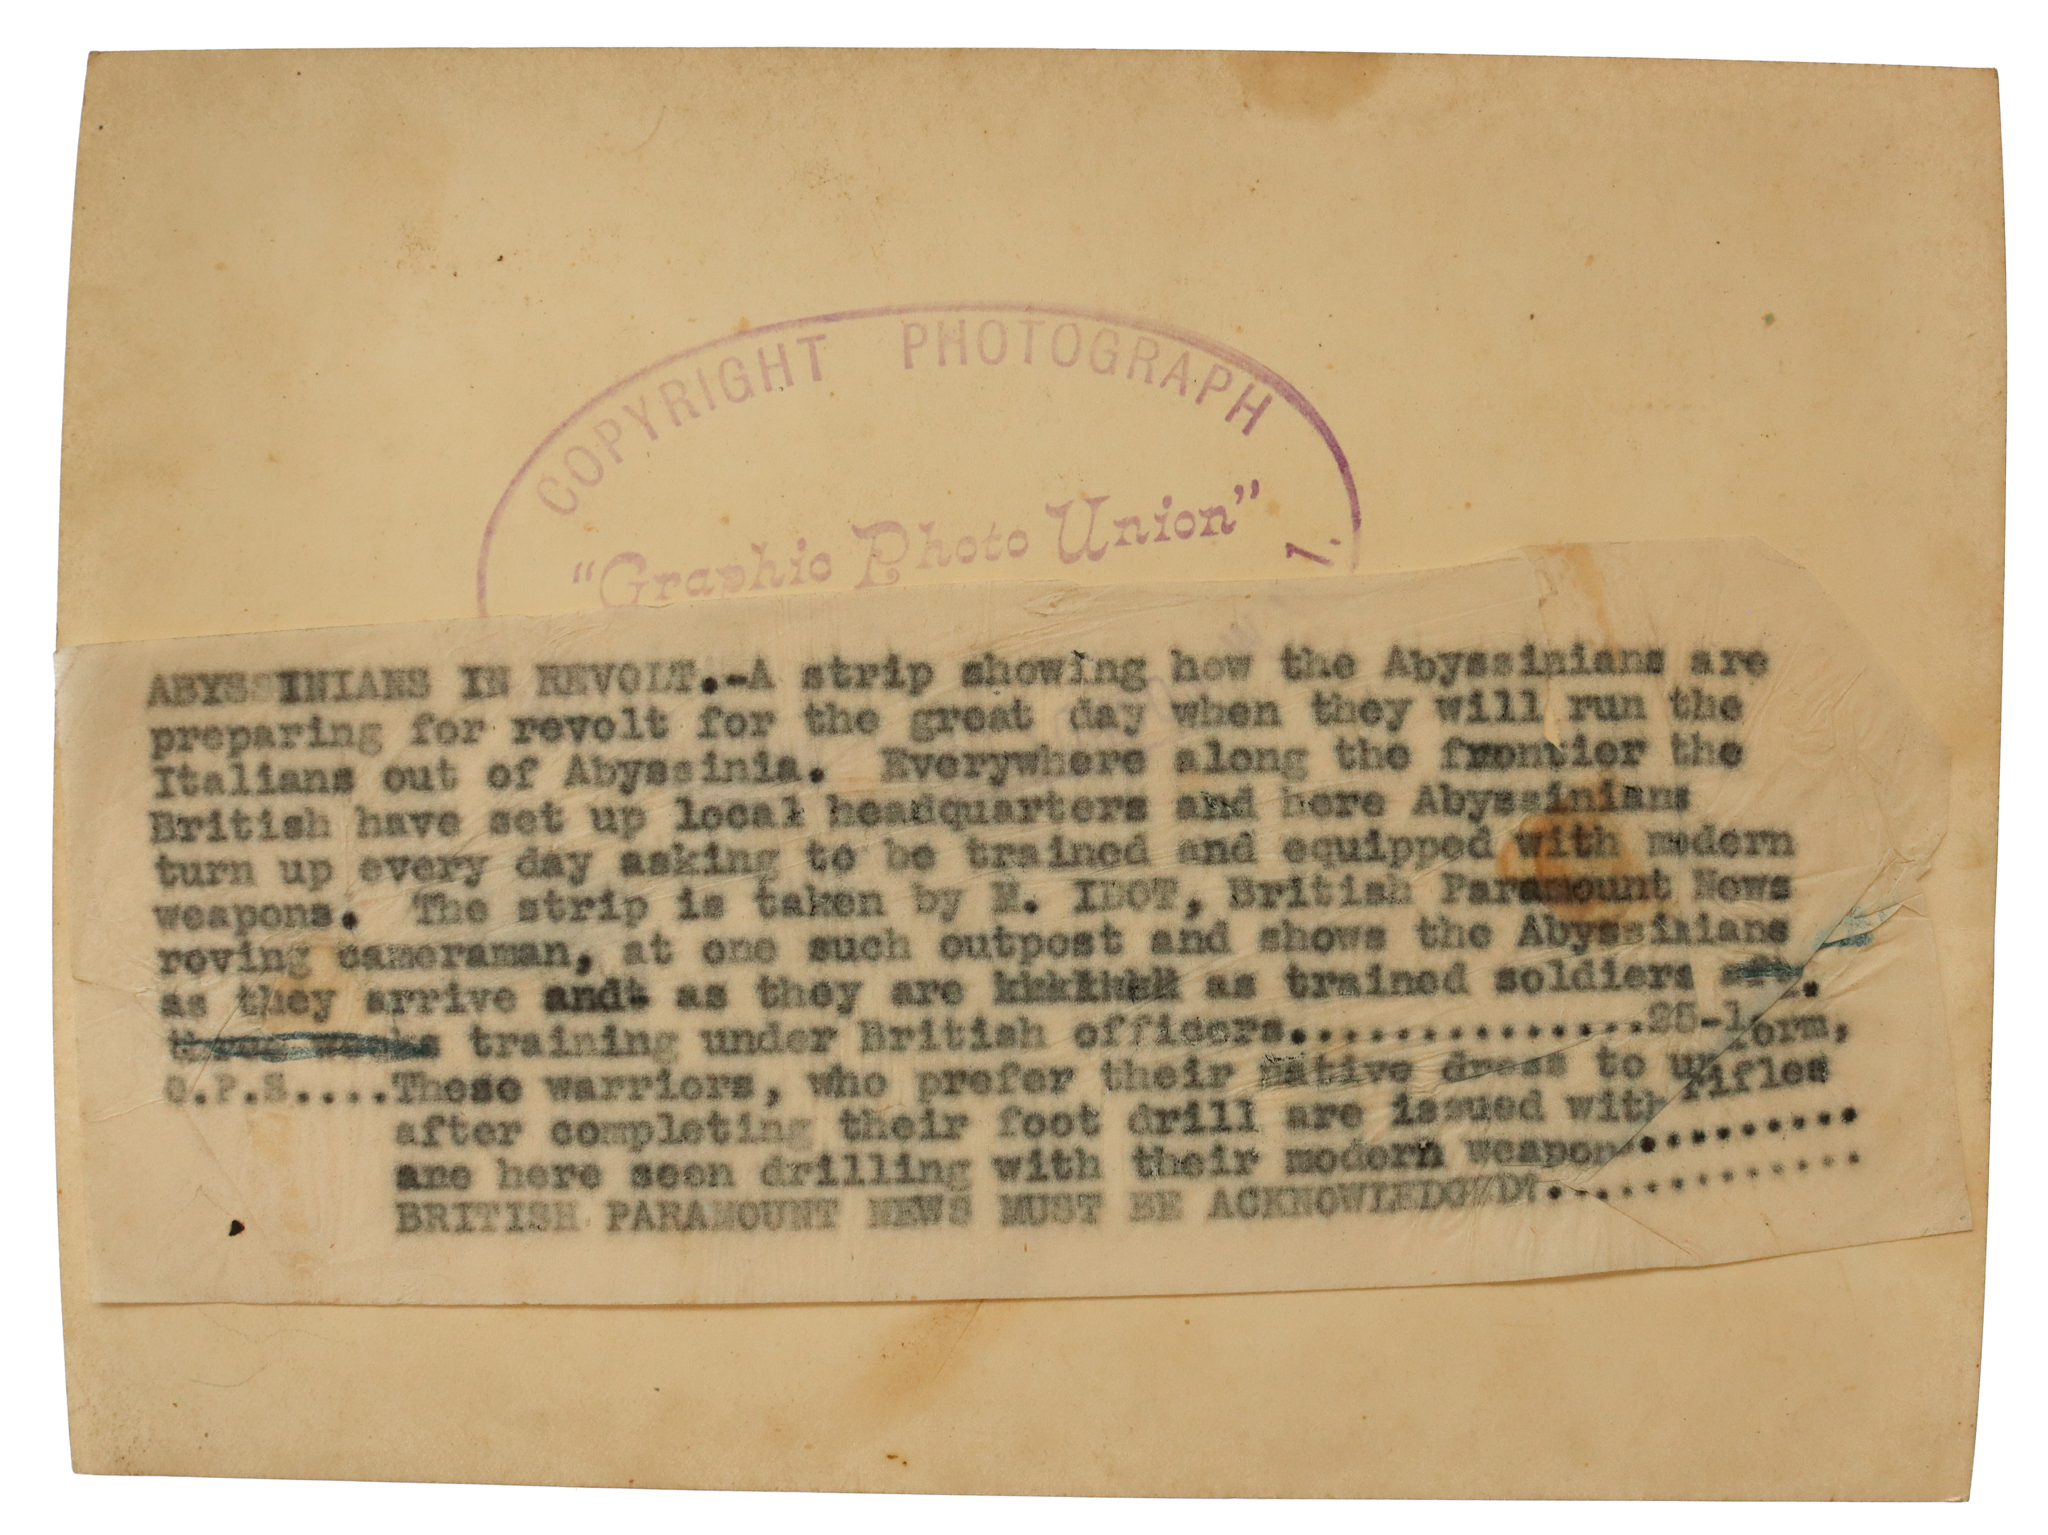 COPYRIGHT PHOTOGRAPH
"Graphic Photo Union"
ABYSSINIANS IN REVOLT.-A strip showing how the Abyssinians are
preparing for revolt for the great day when they will run the
Italians out of Abyssinia. Everywhere along the frontier the
British have set up local headquarters and here Abyssinians
turn up every day asking to be trained and equipped with modern
weapons. The strip is taken by N. IDOT, British Paramount News
roving cameraman, at one such outpost and shows the Abyssinians
as they arrive and as they are as trained soldiers
training under British officers...............25-1
G.P.S....These warriors, who prefer their native dress to uniform,
after completing their foot drill are issued with rifles
are here seen drilling with their modern weapon..........
BRITISH PARAMOUNT NEWS MUST BE ACKNOWLEDGED.............